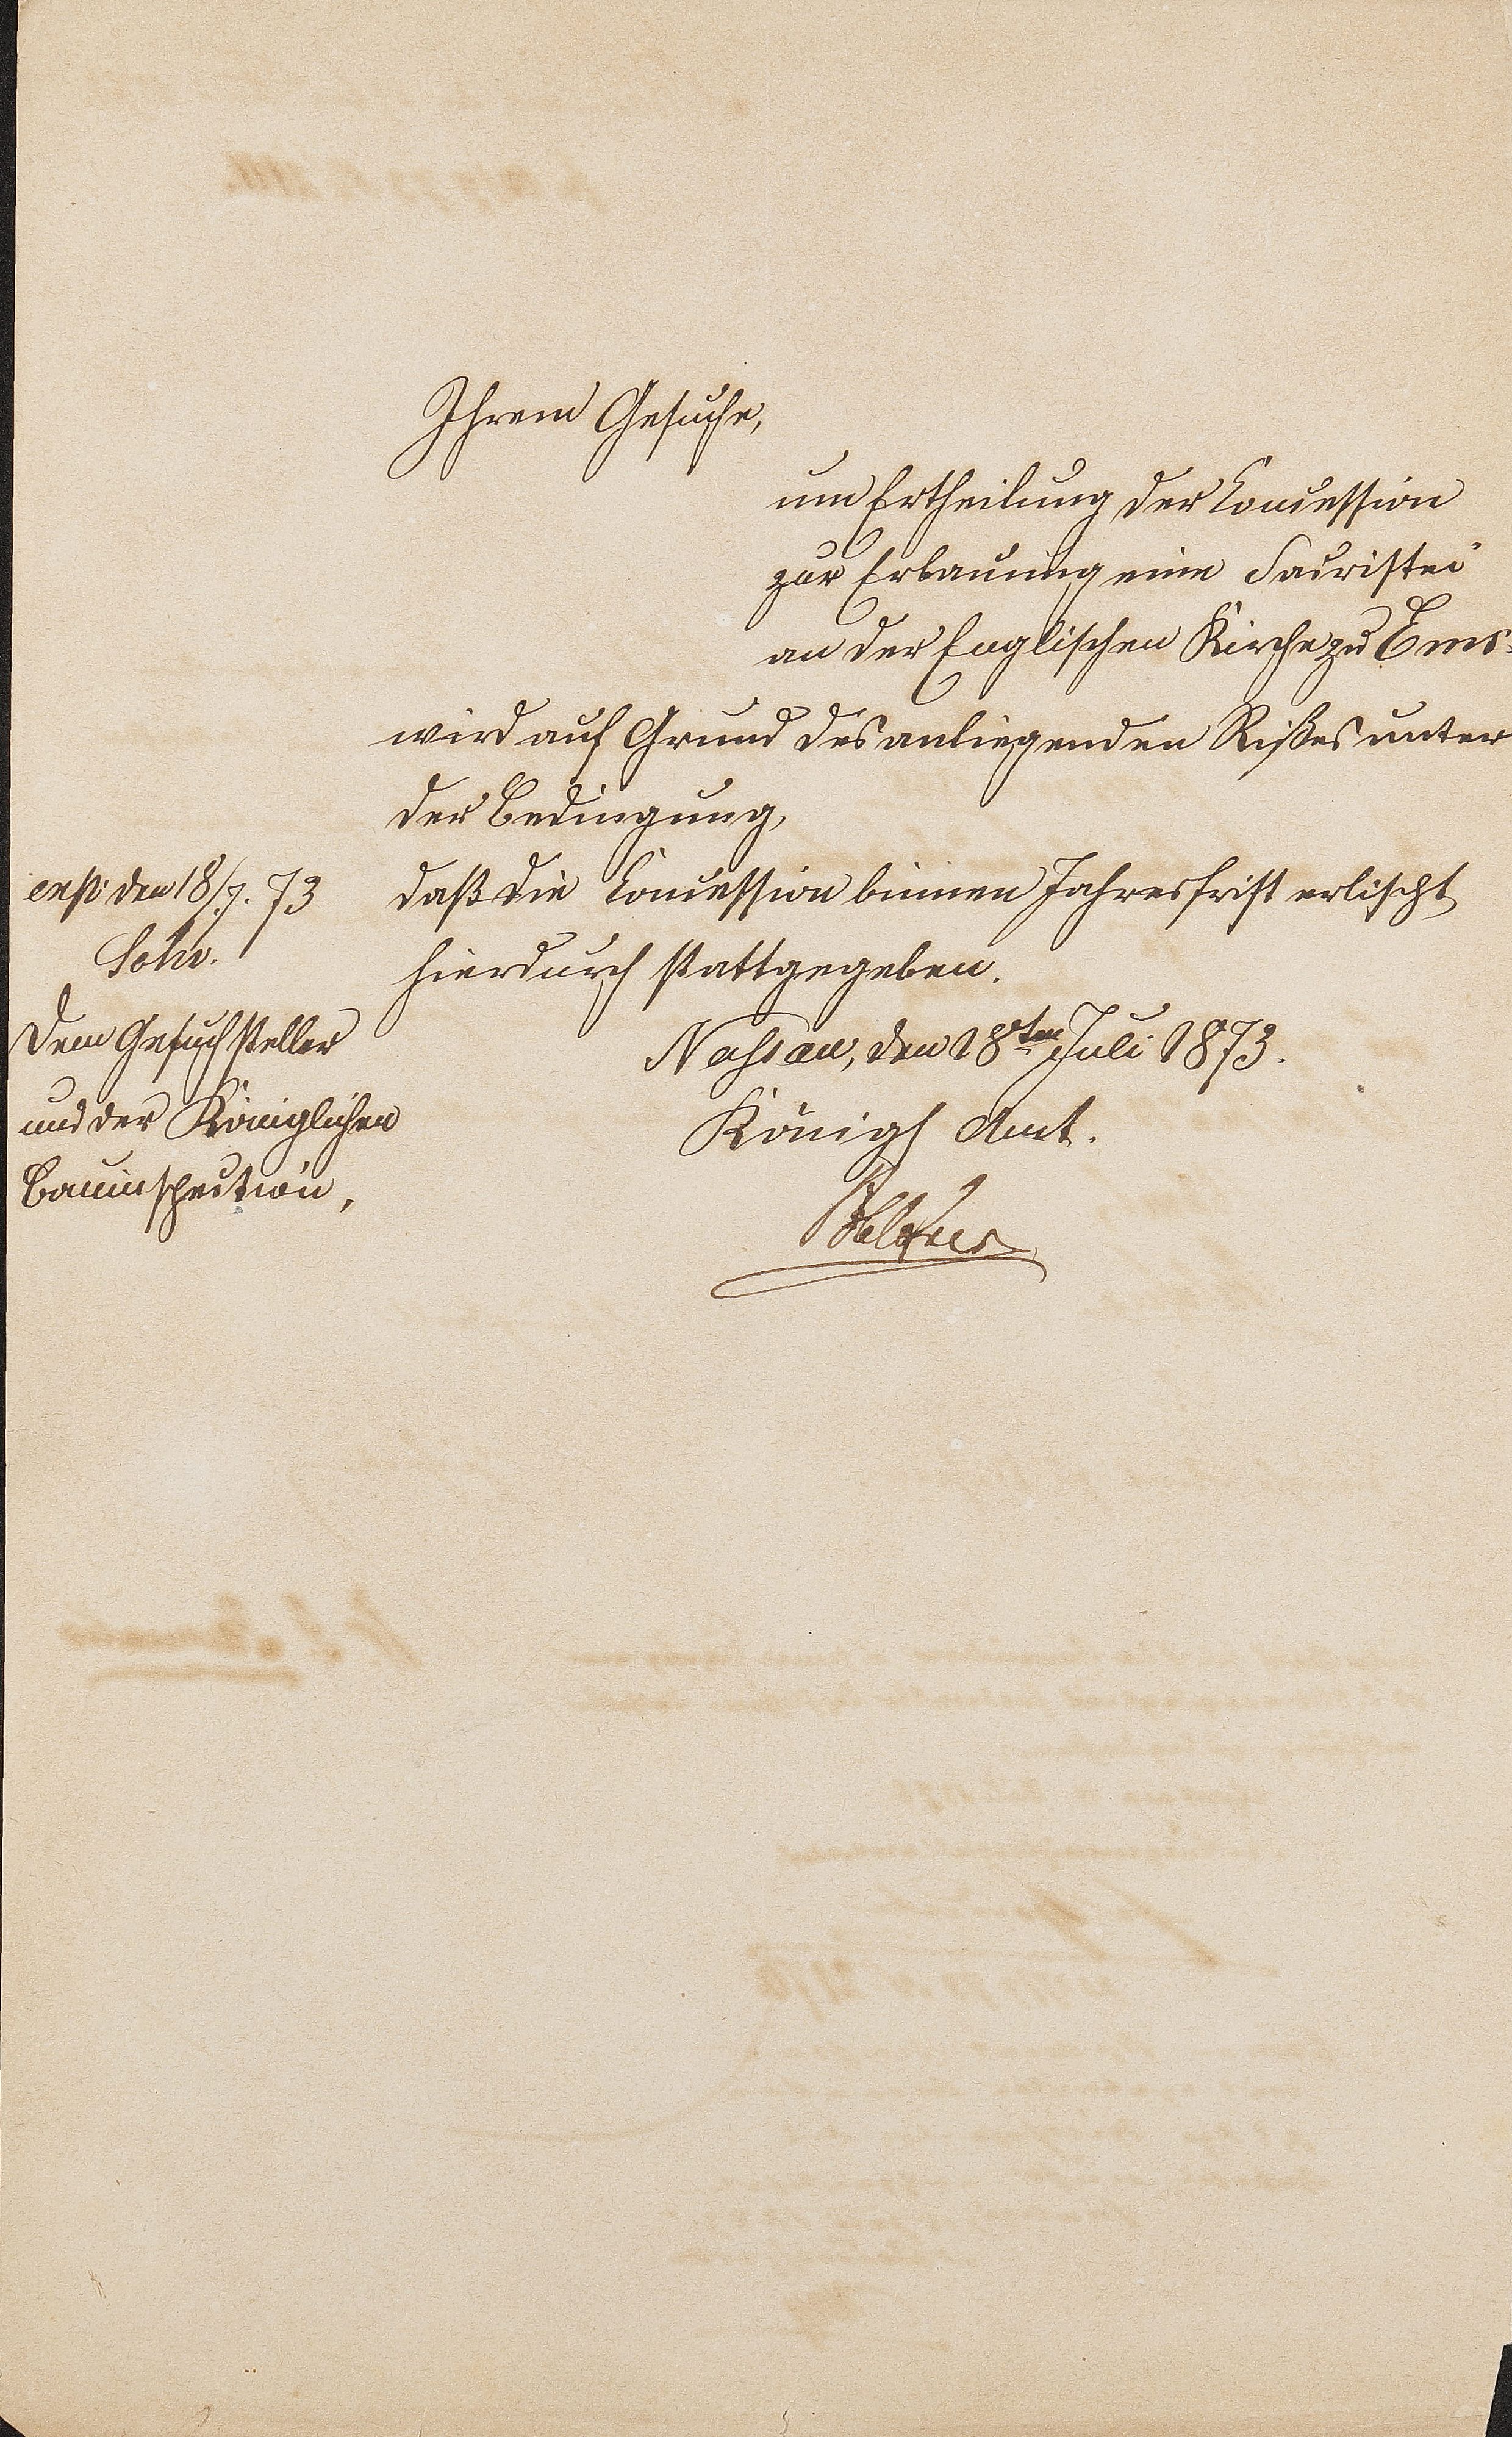 Ihrem Gesuche,
um Ertheilung der Concession
zur Erbauung eine Sacristei
an der Englischen Kirche zu Ems.
wird auf Grund des anliegenden Rißes unter
der Bedingung,
daß die Concession binnen Jahresfrist erlischt
hierdurch stattgegeben.
Nassau, den 18ten Juli 1873.
Königl Amt.
exp: den 18/7. 73
Dem Gesuchsteller
und der Königlichen
Bauinspection,